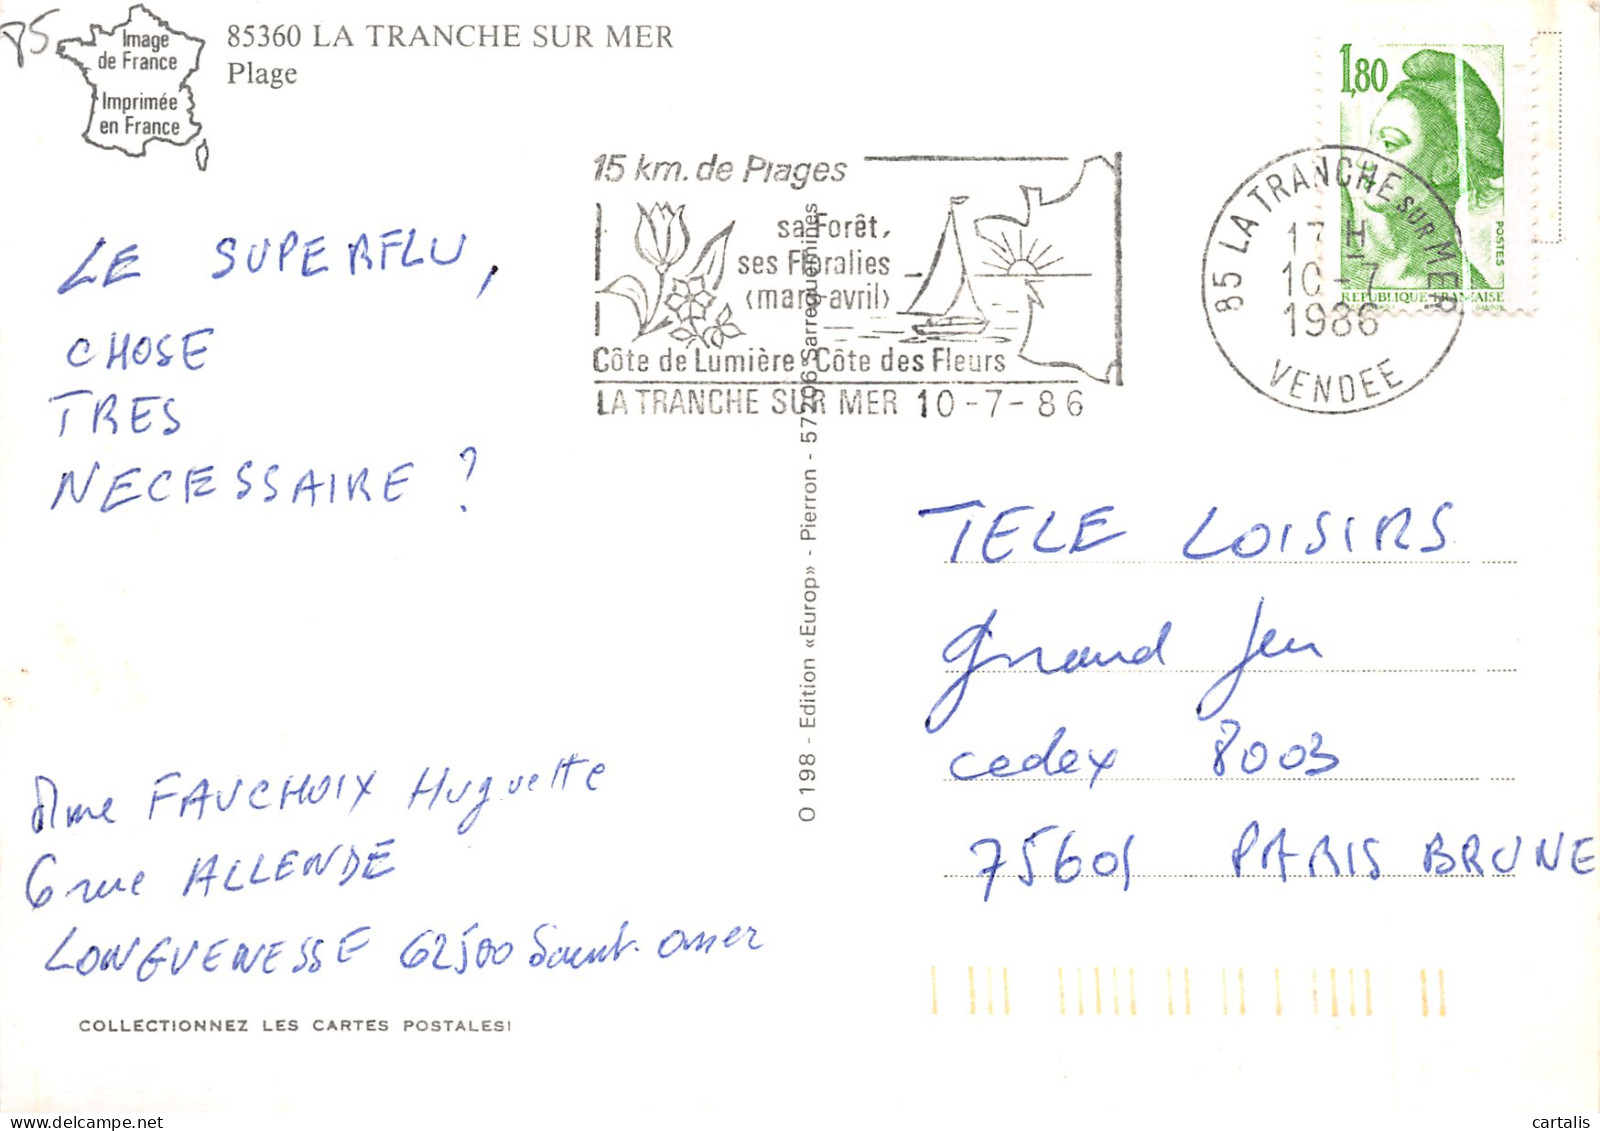 85
Image
de France
Imprimée
en France
85360 LA TRANCHE SUR MER
Plage
1,80
POSTES
REPUBLIQUE FRANÇAISE
15 km. de Plages
sa Forêt,
ses Floralies
(mars-avril)
Côte de Lumière, Côte des Fleurs
LA TRANCHE SUR MER 10-7-86
85 LA TRANCHE SUR MER
17 H
10-7
1986
VENDEE
LE SUPERFLU,
CHOSE
TRES
NECESSAIRE ?
O 198 - Edition «Europ» - Pierron - 57206 Sarreguemines
TELE LOISIRS
Grand Jeu
cedex 8003
75601 PARIS BRUNE
Mme FAUCHOIX Huguette
6 rue ALLENDE
LONGUENESSE 62500 Saint-Omer
COLLECTIONNEZ LES CARTES POSTALES!
cartalis